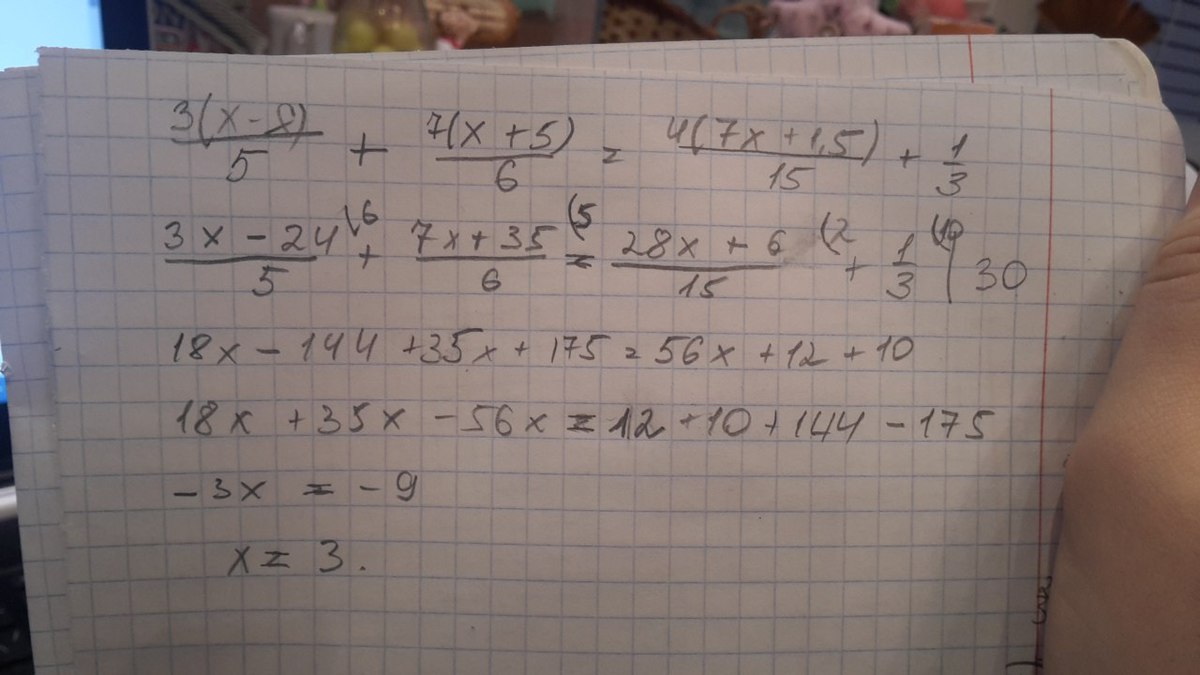 3(x-8)/5 + 7(x+5)/6 = 4(7x+1,5)/15 + 1/3
3x-24/5 (6 + 7x+35/6 (5 = 28x+6/15 (2 + 1/3 (10 | 30
18x - 144 + 35x + 175 = 56x + 12 + 10
18x + 35x - 56x = 12 + 10 + 144 - 175
-3x = -9
x = 3.